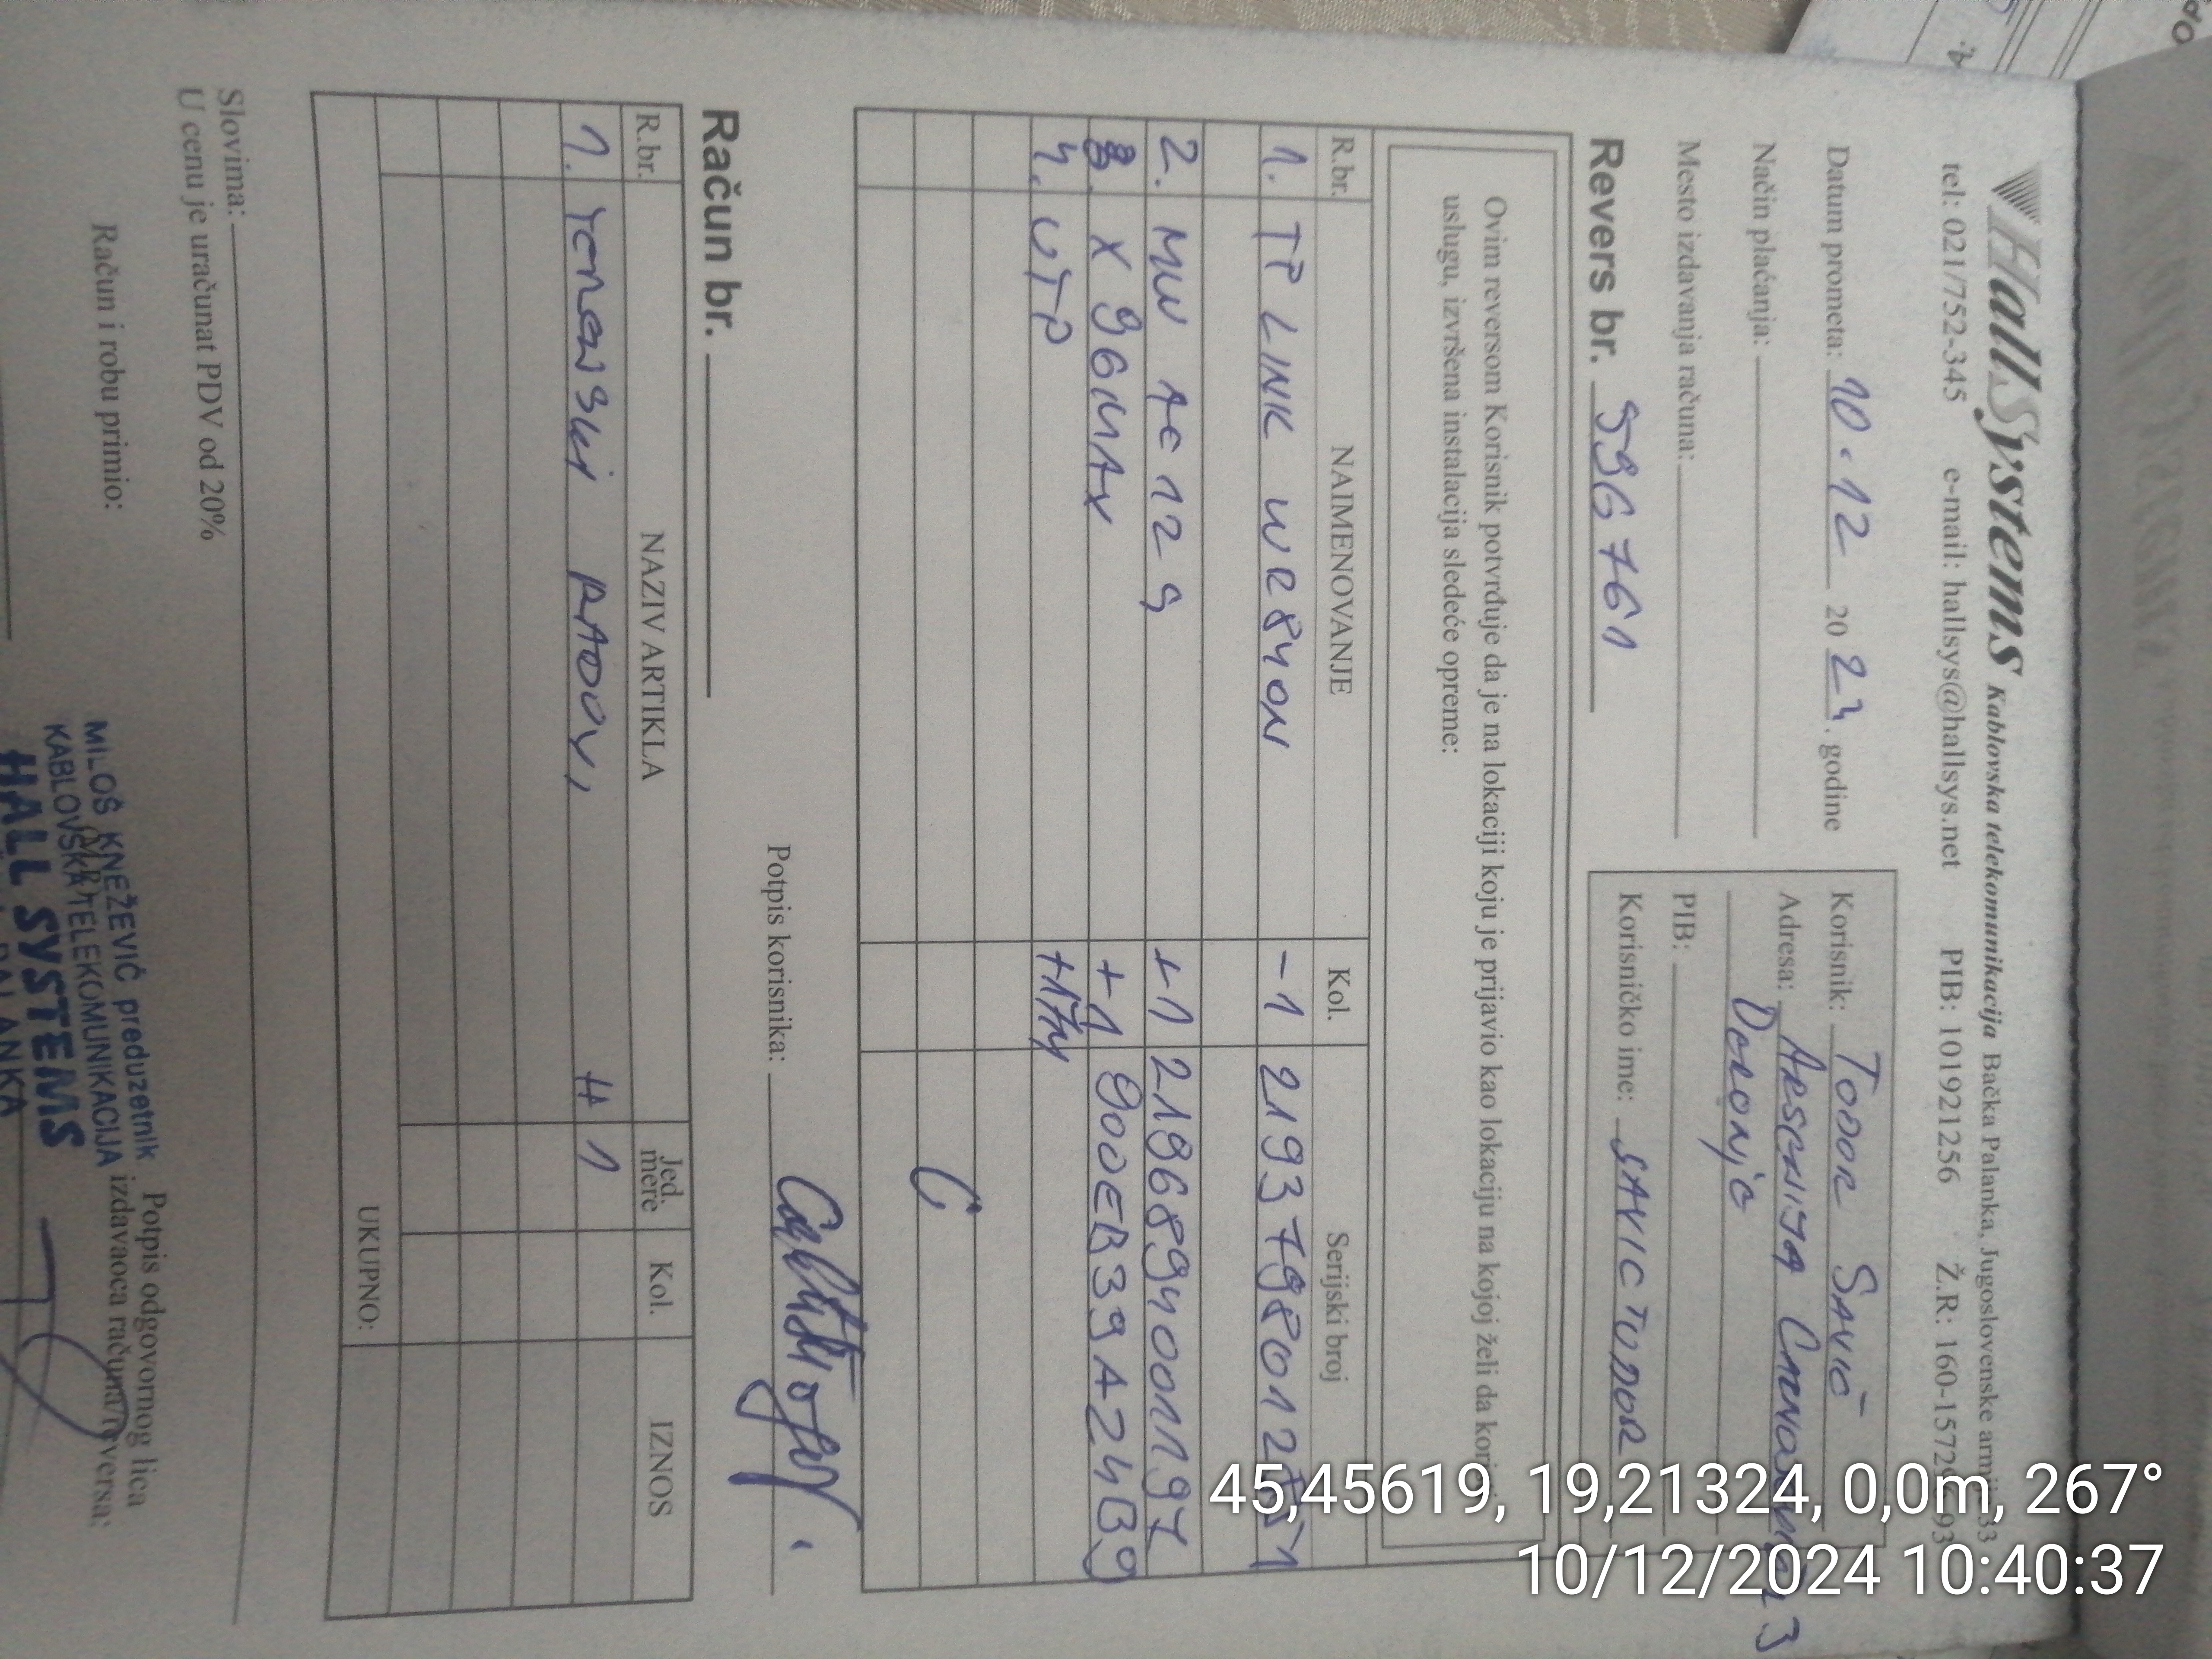 HallSystems Kablovska telekomunikacija Bačka Palanka, Jugoslovenske armije 33
tel: 021/752-345 e-mail: hallsys@hallsys.net PIB: 101921256 Ž.R: 160-1572
Datum prometa: 10.12 20 23. godine
Način plaćanja:
Mesto izdavanja računa:
Korisnik: TODOR SAVIĆ
Adresa: ARSENIJA
PIB:
Korisničko ime: SAVICTODOR
Revers br. 596761
Ovim reversom Korisnik potvrđuje da je na lokaciji koju je prijavio kao lokaciju na kojoj želi da
uslugu, izvršena instalacija sledeće opreme:
R.br. NAIMENOVANJE Kol. Serijski broj
1. TP LINK WR840N -1
2. MW AC12G +1 2196894001197
3. X96MAX +1 900EB39A24B9
4. UTP
Potpis korisnika:
Račun br.
R.br. NAZIV ARTIKLA Jed. mere Kol. IZNOS
1. TERENSKI RADOVI H 1
UKUPNO:
Slovima:
U cenu je uračunat PDV od 20%
Račun i robu primio:
Potpis odgovornog lica
izdavaoca računa/reversa:
MILOŠ KNEŽEVIĆ preduzetnik
KABLOVSKA TELEKOMUNIKACIJA
HALL SYSTEMS
45,45619, 19,21324, 0,0m, 267°
10/12/2024 10:40:37